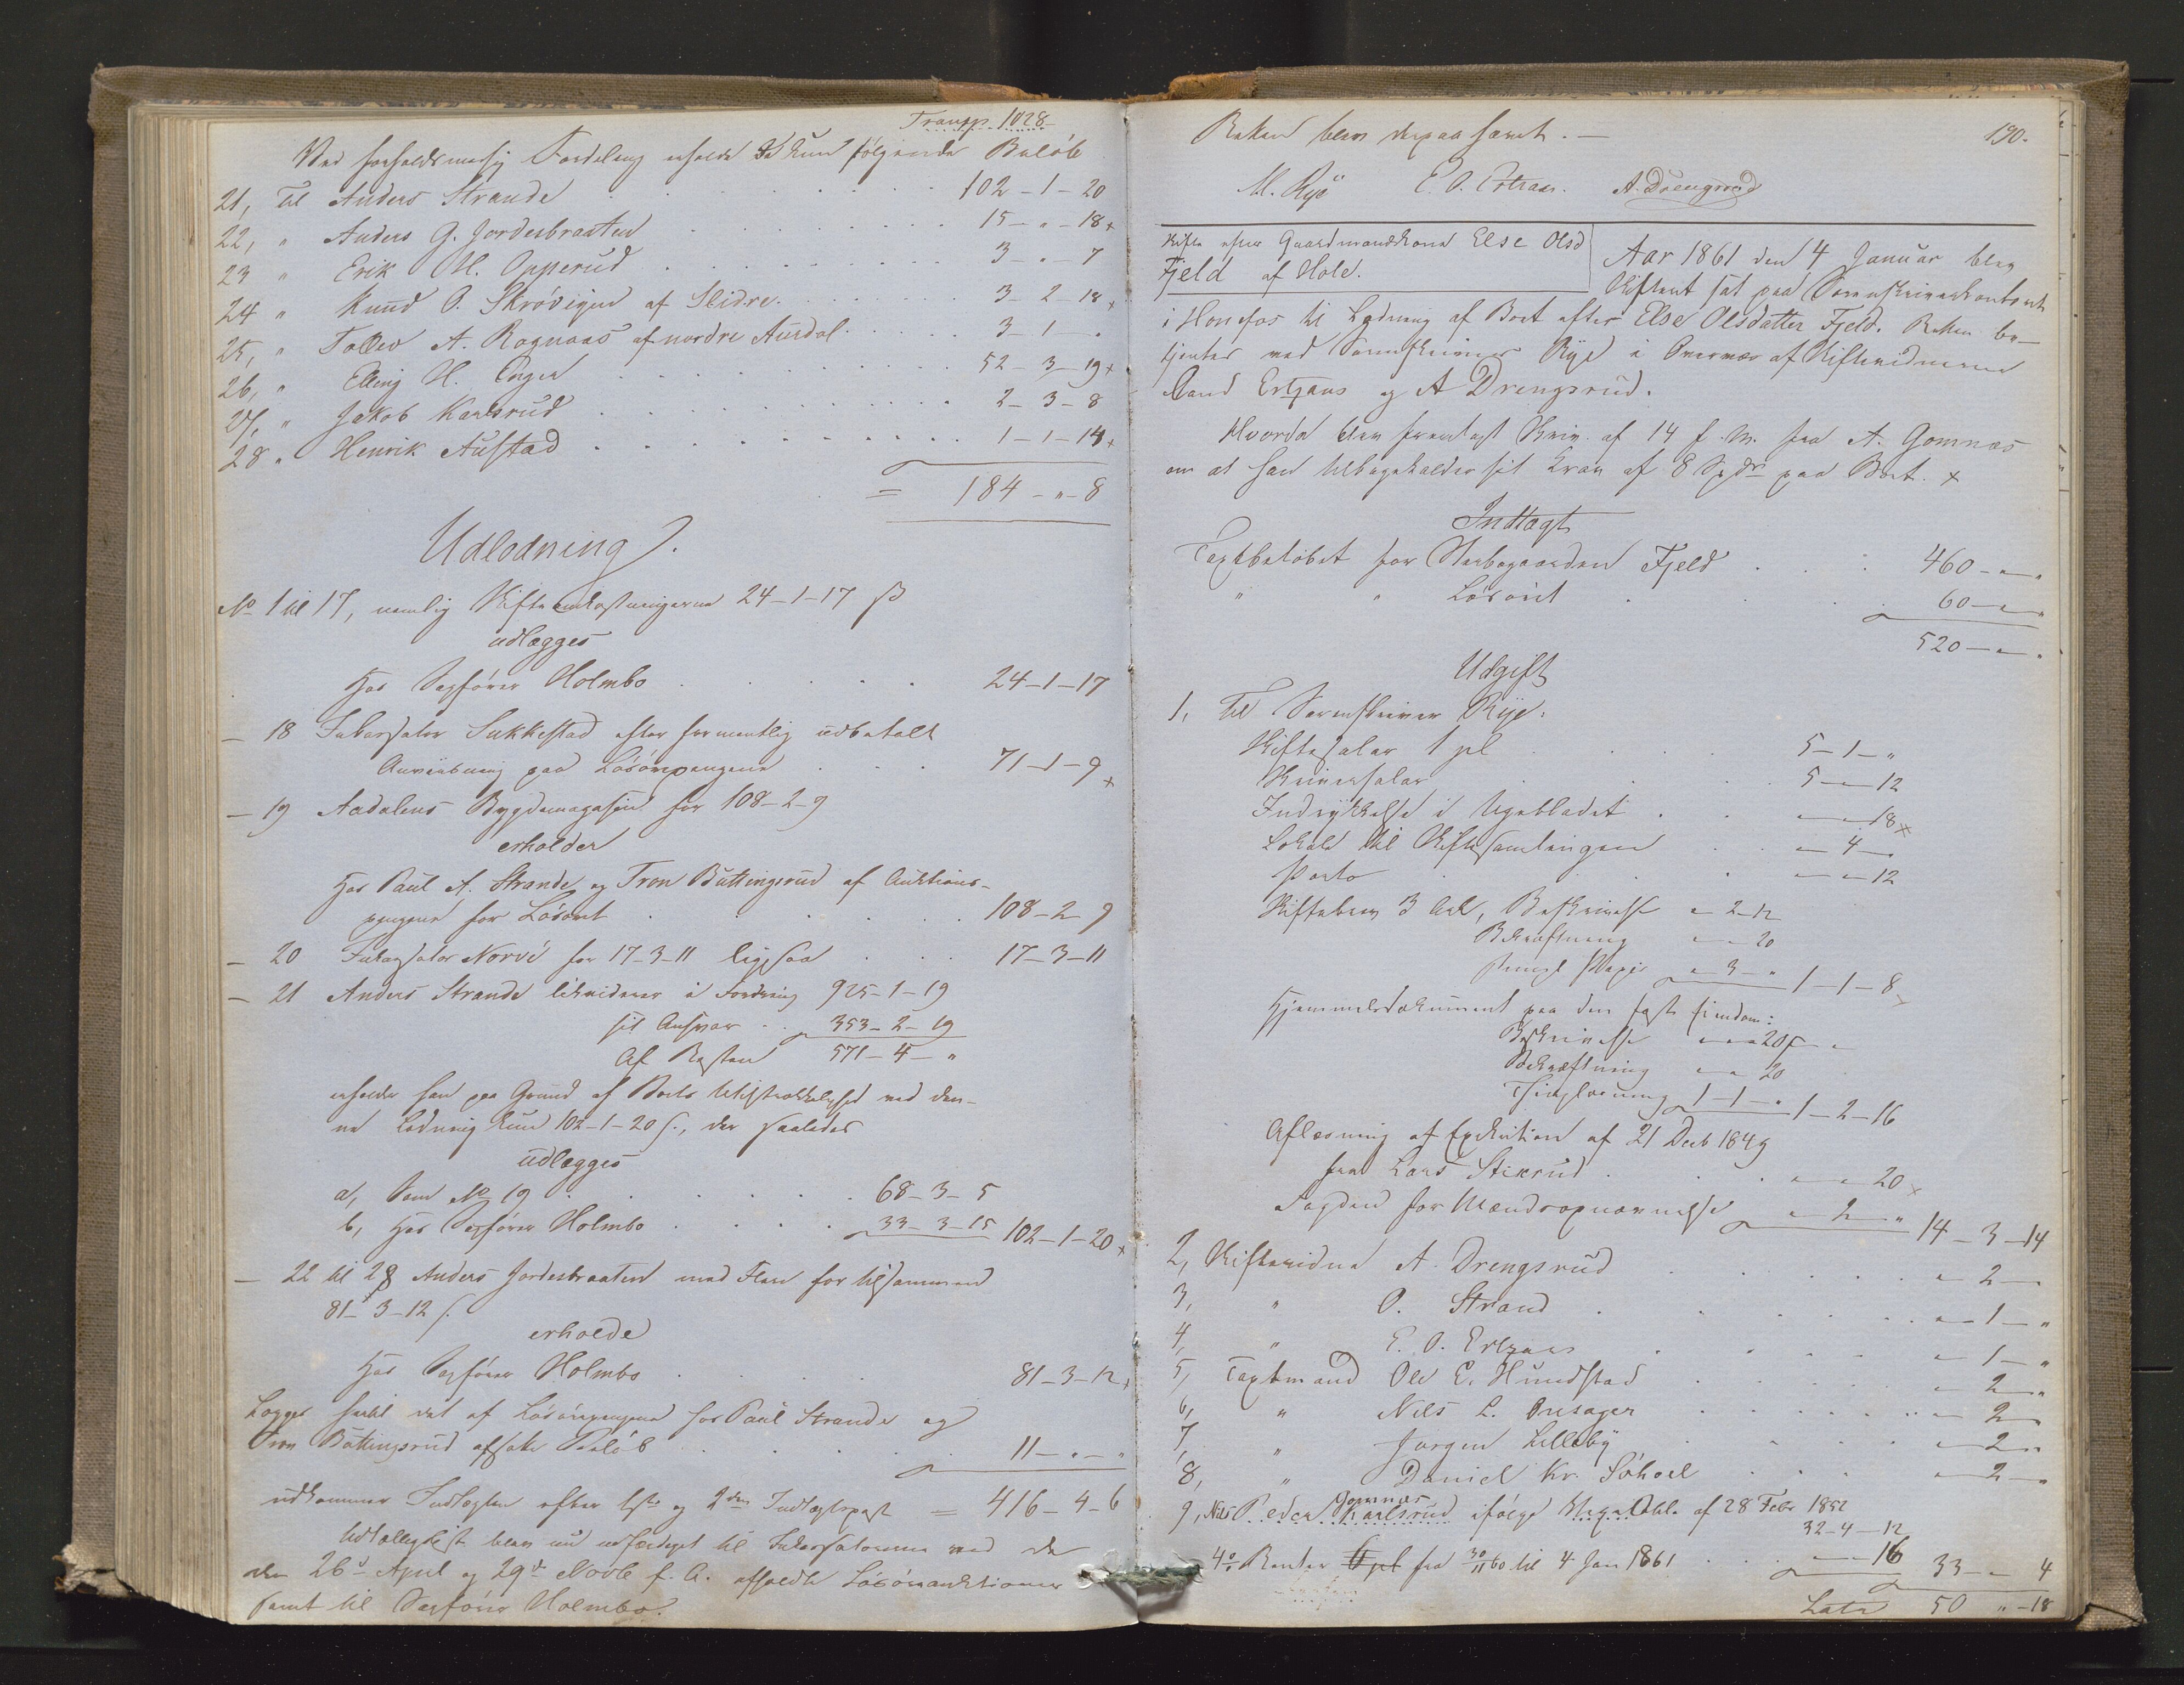 Transp. 1028
Ved forholdsmæsig Fordeling erholde de kun følgende Beløb
21, Til Anders Strande 102-1-20
22, " Anders G. Jordesbraaten 15-"-18
23 " Erik M. Opperud 3-"-7
24 " Knud O. Skrøvigen af Slidre 3-2-18
25, " Tollev A. Rognaas af nordre Aurdal 3-1-"
26, " Elling H. Enger 52-3-19
27, " Jakob Karlsrud 2-3-8
28 " Henrik Austad 1-1-14
= 184-"-8
Udlodning.
No 1 til 17, nemlig Skifteomkostningerne 24-1-17 ß
udlægges
Hos Sagfører Holmbo 24-1-17
- 18 Inkassator Sukkestad efter formentlig udbetalt
Anviisning paa Løsørepengene 71-1-9
- 19 Aadalens Bygdemagasin for 108-2-9
erholder
Hos Paul A. Strande og Tron Buttingsrud af Auktions-
pengene for Løsøret 108-2-9
- 20 Inkassator Norvi for 17-3-11 ligesaa 17-3-11
- 21 Anders Strande likviderer i Fordring 925-1-19
sit Ansvar 353-2-19
Af Resten 571-4-"
erholder han paa Grund af Boets Utilstrækkelighed ved den-
ne Lodning kun 102-1-20 ß., der saaledes
udlægges
a, Som No 19 68-3-5
b, Hos Sagfører Holmbo 33-3-15 102-1-20
- 22 til 28 Anders Jordesbraaten med Flere for tilsammen
81-3-12 ß.
erholde
Hos Sagfører Holmbo 81-3-12
Lægges hertil det af Løsørepengene hos Paul Strande og
Tron Buttingsrud afsatte Beløb 11-"-"
udkommer Indtægten efter 1ste og 2den Indtægtspost = 416-4-6
Udlodslist blev nu udfærdiget til Inkassatorerne ved de
den 26de April og 29de Novb f. A. afholdte Løsøreauktioner
samt til Sagfører Holmbo.
190.
Retten blev derpaa hævet. -
M. Rye E. O. Ertzaas. A. Drengsrud
Skifte efter Gaardmandskone Else Olsd
Fjeld af Hole.
Aar 1861 den 4 Januar blev
Skifteret sat paa Sorenskriverkontoret
i Hønefos til Lodning af Boet efter Else Olsdatter Fjeld. Retten be-
tjentes ved Sorenskriver Rye i Overvær af Skiftevidnerne
Evend Ertzaas og A Drengsrud.
Hvorda blev fremlagt Skriv. af 14 f. M. fra A. Gomnæs
om at han tilbagekalder sit Krav af 8 Spdr paa Boet.
Indtægt
Taxtbeløbet for Stervbogaarden Fjeld 460-"-"
" " Løsøret 60-"-"
520-"-"
Udgift
1, Til Sorenskriver Rye:
Skiftesalær 1 pCt 5-1-"
Skriversalær 5-"-12
Indrykkelse i Ugebladet "-"-18
Lokale til Skiftesamlingen "-4-"
Porto "-"-12
Skiftebrev 3 Ark, Beskrivelse "-2-12
Bekræftning "-"-20
stempl Papir "-3-" 1-1-8
Hjemmelsdokument paa den faste Eiendom:
Beskrivelse "-"-20
Bekræftning "-"-20
Thinglæsning 1-1-" 1-2-16
Aflæsning af Exekution af 21 Decb 1849
fra Lars Stixrud "-"-20
Fogden for Mændsopnævnelse "-2-" 14-3-14
2, Skiftevidne A. Drengsrud "-2-"
3, " O. Strand "-1-"
4, " E. O. Ertzaas "-1-"
5, Taxtmand Ole E. Hundstad "-2-"
6, " Nils L. Onsager "-2-"
7, " Jørgen Lilleby "-2-"
8, " Daniel Kr. Søhoel "-2-"
9, Nils Peder Gomnæs Karlsrud ifølge Oblg. af 28 Febr 1852
32-4-12
4% Renter fra 30/11 60 til 4 Jan 1861 "-"-16 33-"-4
Latr 50 "-18